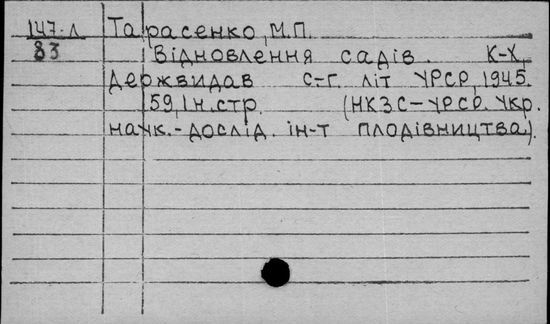 147-л Тарасенко, М.П.
83 Відновлення садів. К-Х,
Держвидав с-г. літ УРСР, 1945.
59, 1 н. стр. (НКЗС-УРСР. Укр.
наук.-дослід. ін-т плодівництва).